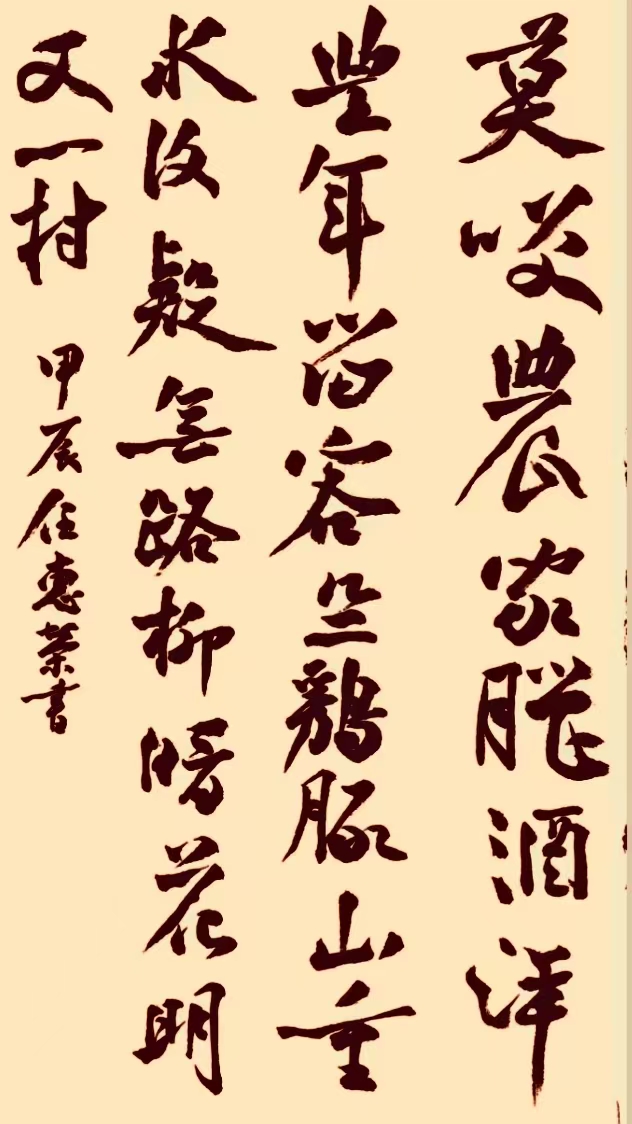 莫咲農家臘酒渾
豐年留客足鷄豚山重
水復疑無路柳暗花明
又一村
甲辰任惠榮書